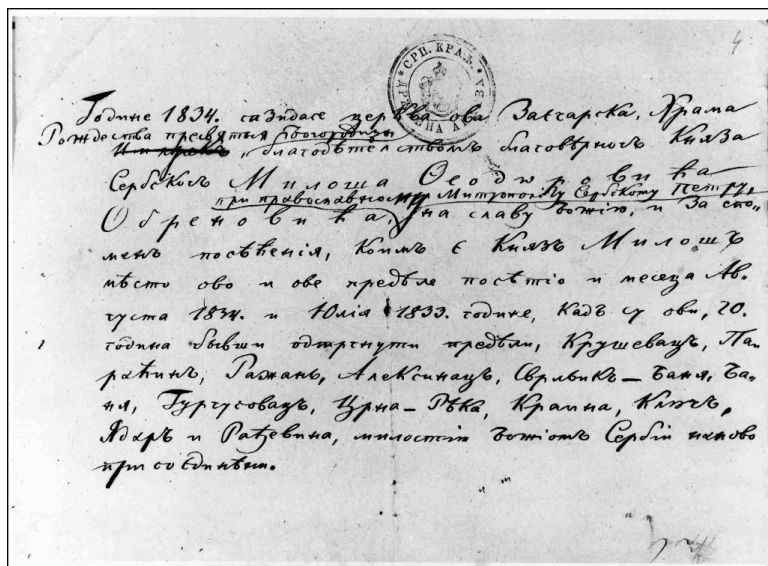 4
СРП. КРАЉ.
Године 1834. сазидасе церква ова Заечарска, Храма
Рождества пресвятыя Богородицы
благодѣтелствомъ благовѣрногъ Князя
Сербскогъ Милоша Ѳеодоровића
при православномъ Митрополіту Сербскому Петру,
Обреновића, на славу Божію, и за спо-
менъ посѣћенія, коимъ є Князь Милошъ
мѣсто ово и ове предѣле посѣтіо и месеца Ав-
густа 1834. и Юлія 1833. године, кадъ су ови, 20.
година бывши одтргнути предѣли, Крушевацъ, Па-
раћинъ, Ражань, Алексинацъ, Сврльикъ – Баня, Ба-
ня, Гургусовацъ, Црна – Рѣка, Краина, Ключъ,
Ядаръ и Рађевина, милостію Божіомъ Сербіи наново
присоєдинѣни.